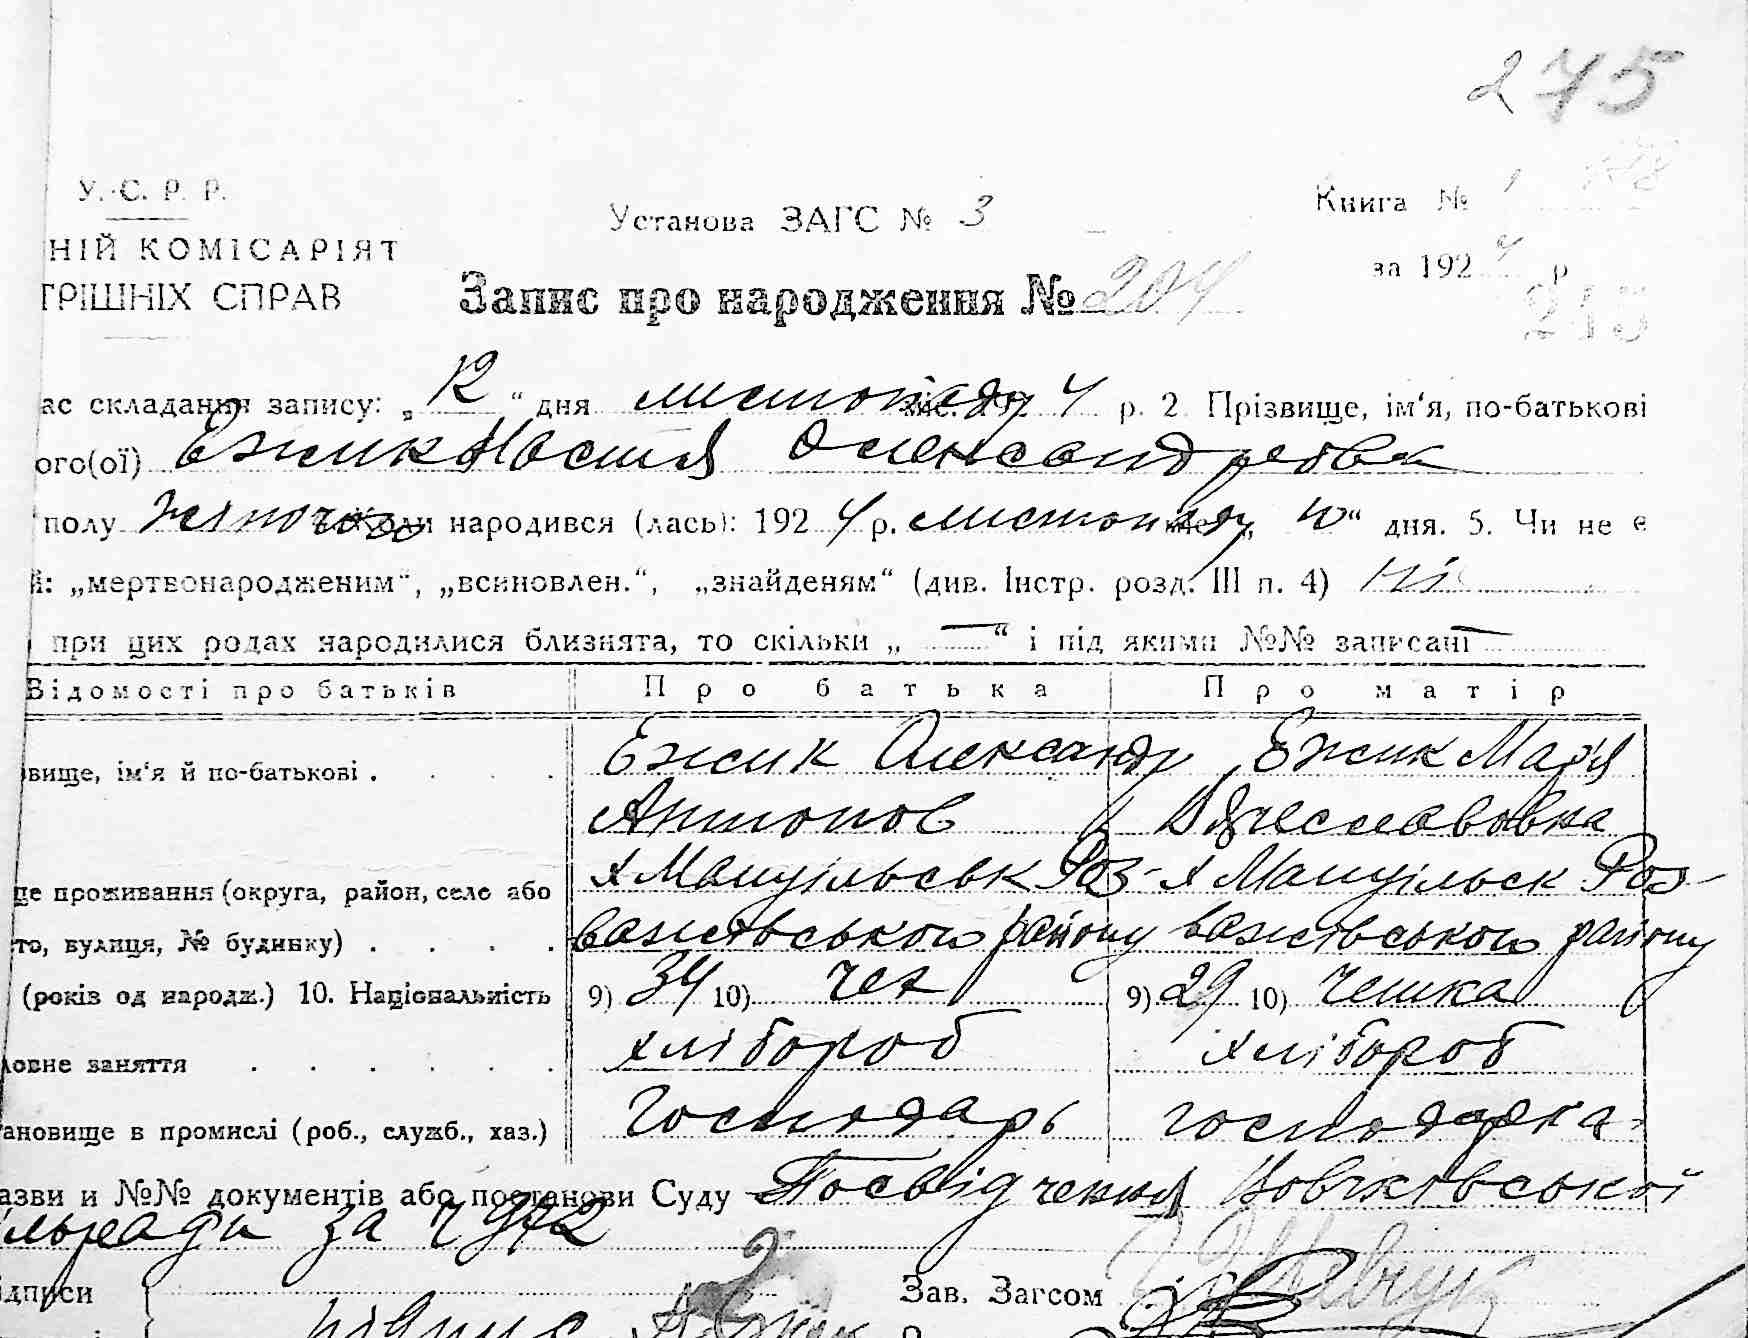 275
У. С. Р. Р.
Установа ЗАГС № 3
Книга № 1
НІЙ КОМІСАРІЯТ
за 1924 р
ТРІШНІХ СПРАВ
Запис про народження № 204
275
ас складання запису: „12“ дня листопаду 4 р. 2 Прізвище, ім‘я, по-батькові
ого(ої) Ежик Настя Олександровка
полу жіночого коли народився (лась): 1924 р. листопаду „10“ дня. 5. Чи не є
й: „мертвонародженим“, „всиновлен.“, „знайденям“ (див. Інстр. розд. III п. 4) ні
при цих родах народилися близнята, то скільки „—“ і під якими №№ записані —
Відомості про батьків Про батька Про матір
Ежик Олександр Ежик Мар'я
вище, ім‘я й по-батькові . . . .
Антонов Вячеславовка
х Мануїльськ Роз- х Мануїльськ Роз-
це проживання (округа, район, село або
то, вулиця, № будинку) . . . . важівського району важівського району
(років од народж.) 10. Національність 9) 34 10) чех 9) 29 10) чешка
хлібороб хлібороб
ловне заняття . . . . . .
господарь господарка
ановище в промислі (роб., служб., хаз.)
азви и №№ документів або постанови Суду Посвідчення
ільради за ч 972
ідписи Зав. Загсом
підпис